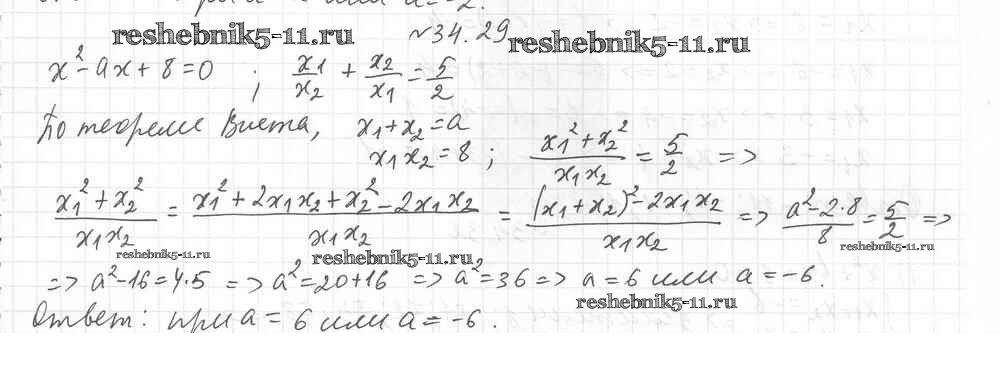 reshebnik5-11.ru №34.29 reshebnik5-11.ru
x² - ax + 8 = 0 ; x₁/x₂ + x₂/x₁ = 5/2
По теореме Виета, x₁ + x₂ = a
x₁x₂ = 8 ; (x₁² + x₂²)/(x₁x₂) = 5/2 =>
(x₁² + x₂²)/(x₁x₂) = (x₁² + 2x₁x₂ + x₂² - 2x₁x₂)/(x₁x₂) = ((x₁ + x₂)² - 2x₁x₂)/(x₁x₂) => (a² - 2·8)/8 = 5/2 =>
reshebnik5-11.ru reshebnik5-11.ru reshebnik5-11.ru
=> a² - 16 = 4·5 => a² = 20 + 16 => a² = 36 => a = 6 или a = -6.
reshebnik5-11.ru
Ответ: при a = 6 или a = -6.